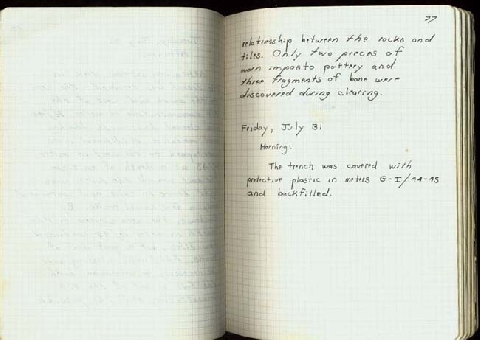 77
relationship between the rocks and
tiles. Only two pieces of
worn impasto pottery and
three fragments of bone were
discovered during clearing.
Friday, July 31
Morning:
The trench was covered with
protective plastic in areas G-I/44-45
and backfilled.